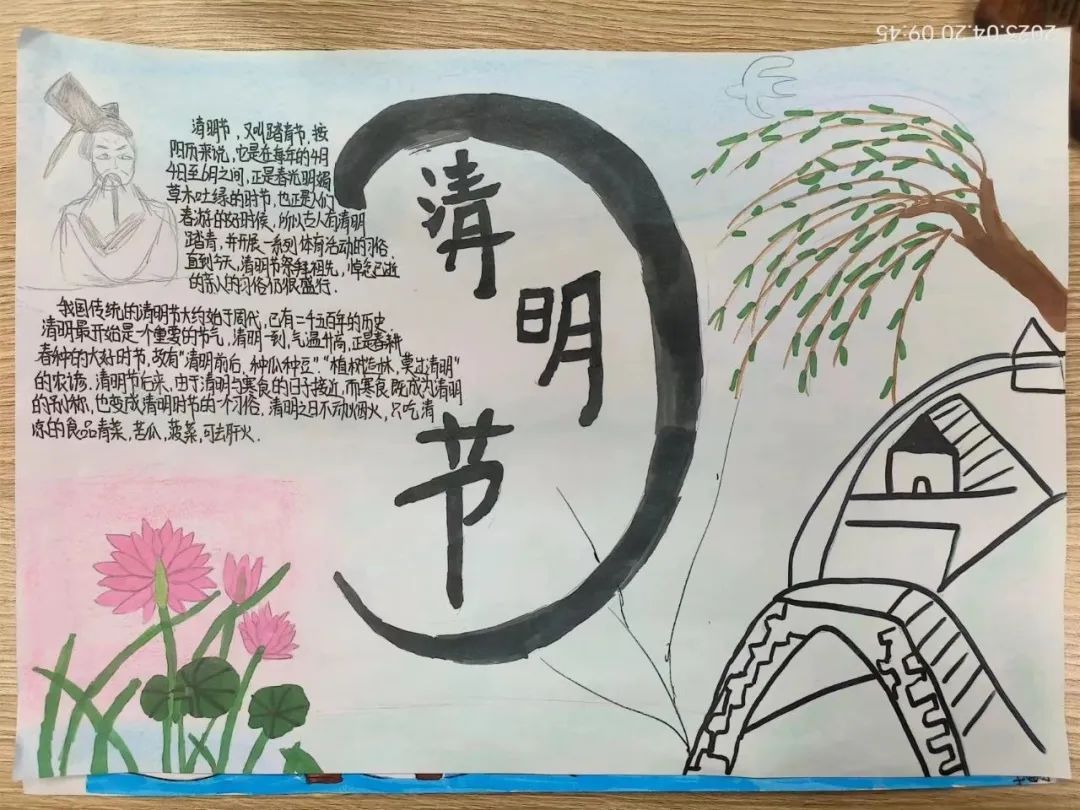 2023.04.20 09:45
清明节
清明节，又叫踏青节，按
阳历来说，它是在每年的4月
4日至6月之间，正是春光明媚
草木吐绿的时节，也正是人们
春游的好时候，所以古人有清明
踏青，并开展一系列体育活动的习俗
直到今天，清明节祭拜祖先，悼念已逝
的亲人的习俗仍很盛行．
我国传统的清明节大约始于周代，已有二千五百年的历史．
清明最开始是一个重要的节气，清明一到，气温升高，正是春耕
春种的大好时节，故有"清明前后，种瓜种豆"．"植树造林，莫过清明"
的农谚．清明节后来，由于清明与寒食的日子接近，而寒食既成为清明
的别称，也变成清明时节的一个习俗，清明之日不动烟火，只吃清
凉的食品青菜，苦瓜，菠菜，可去肝火．